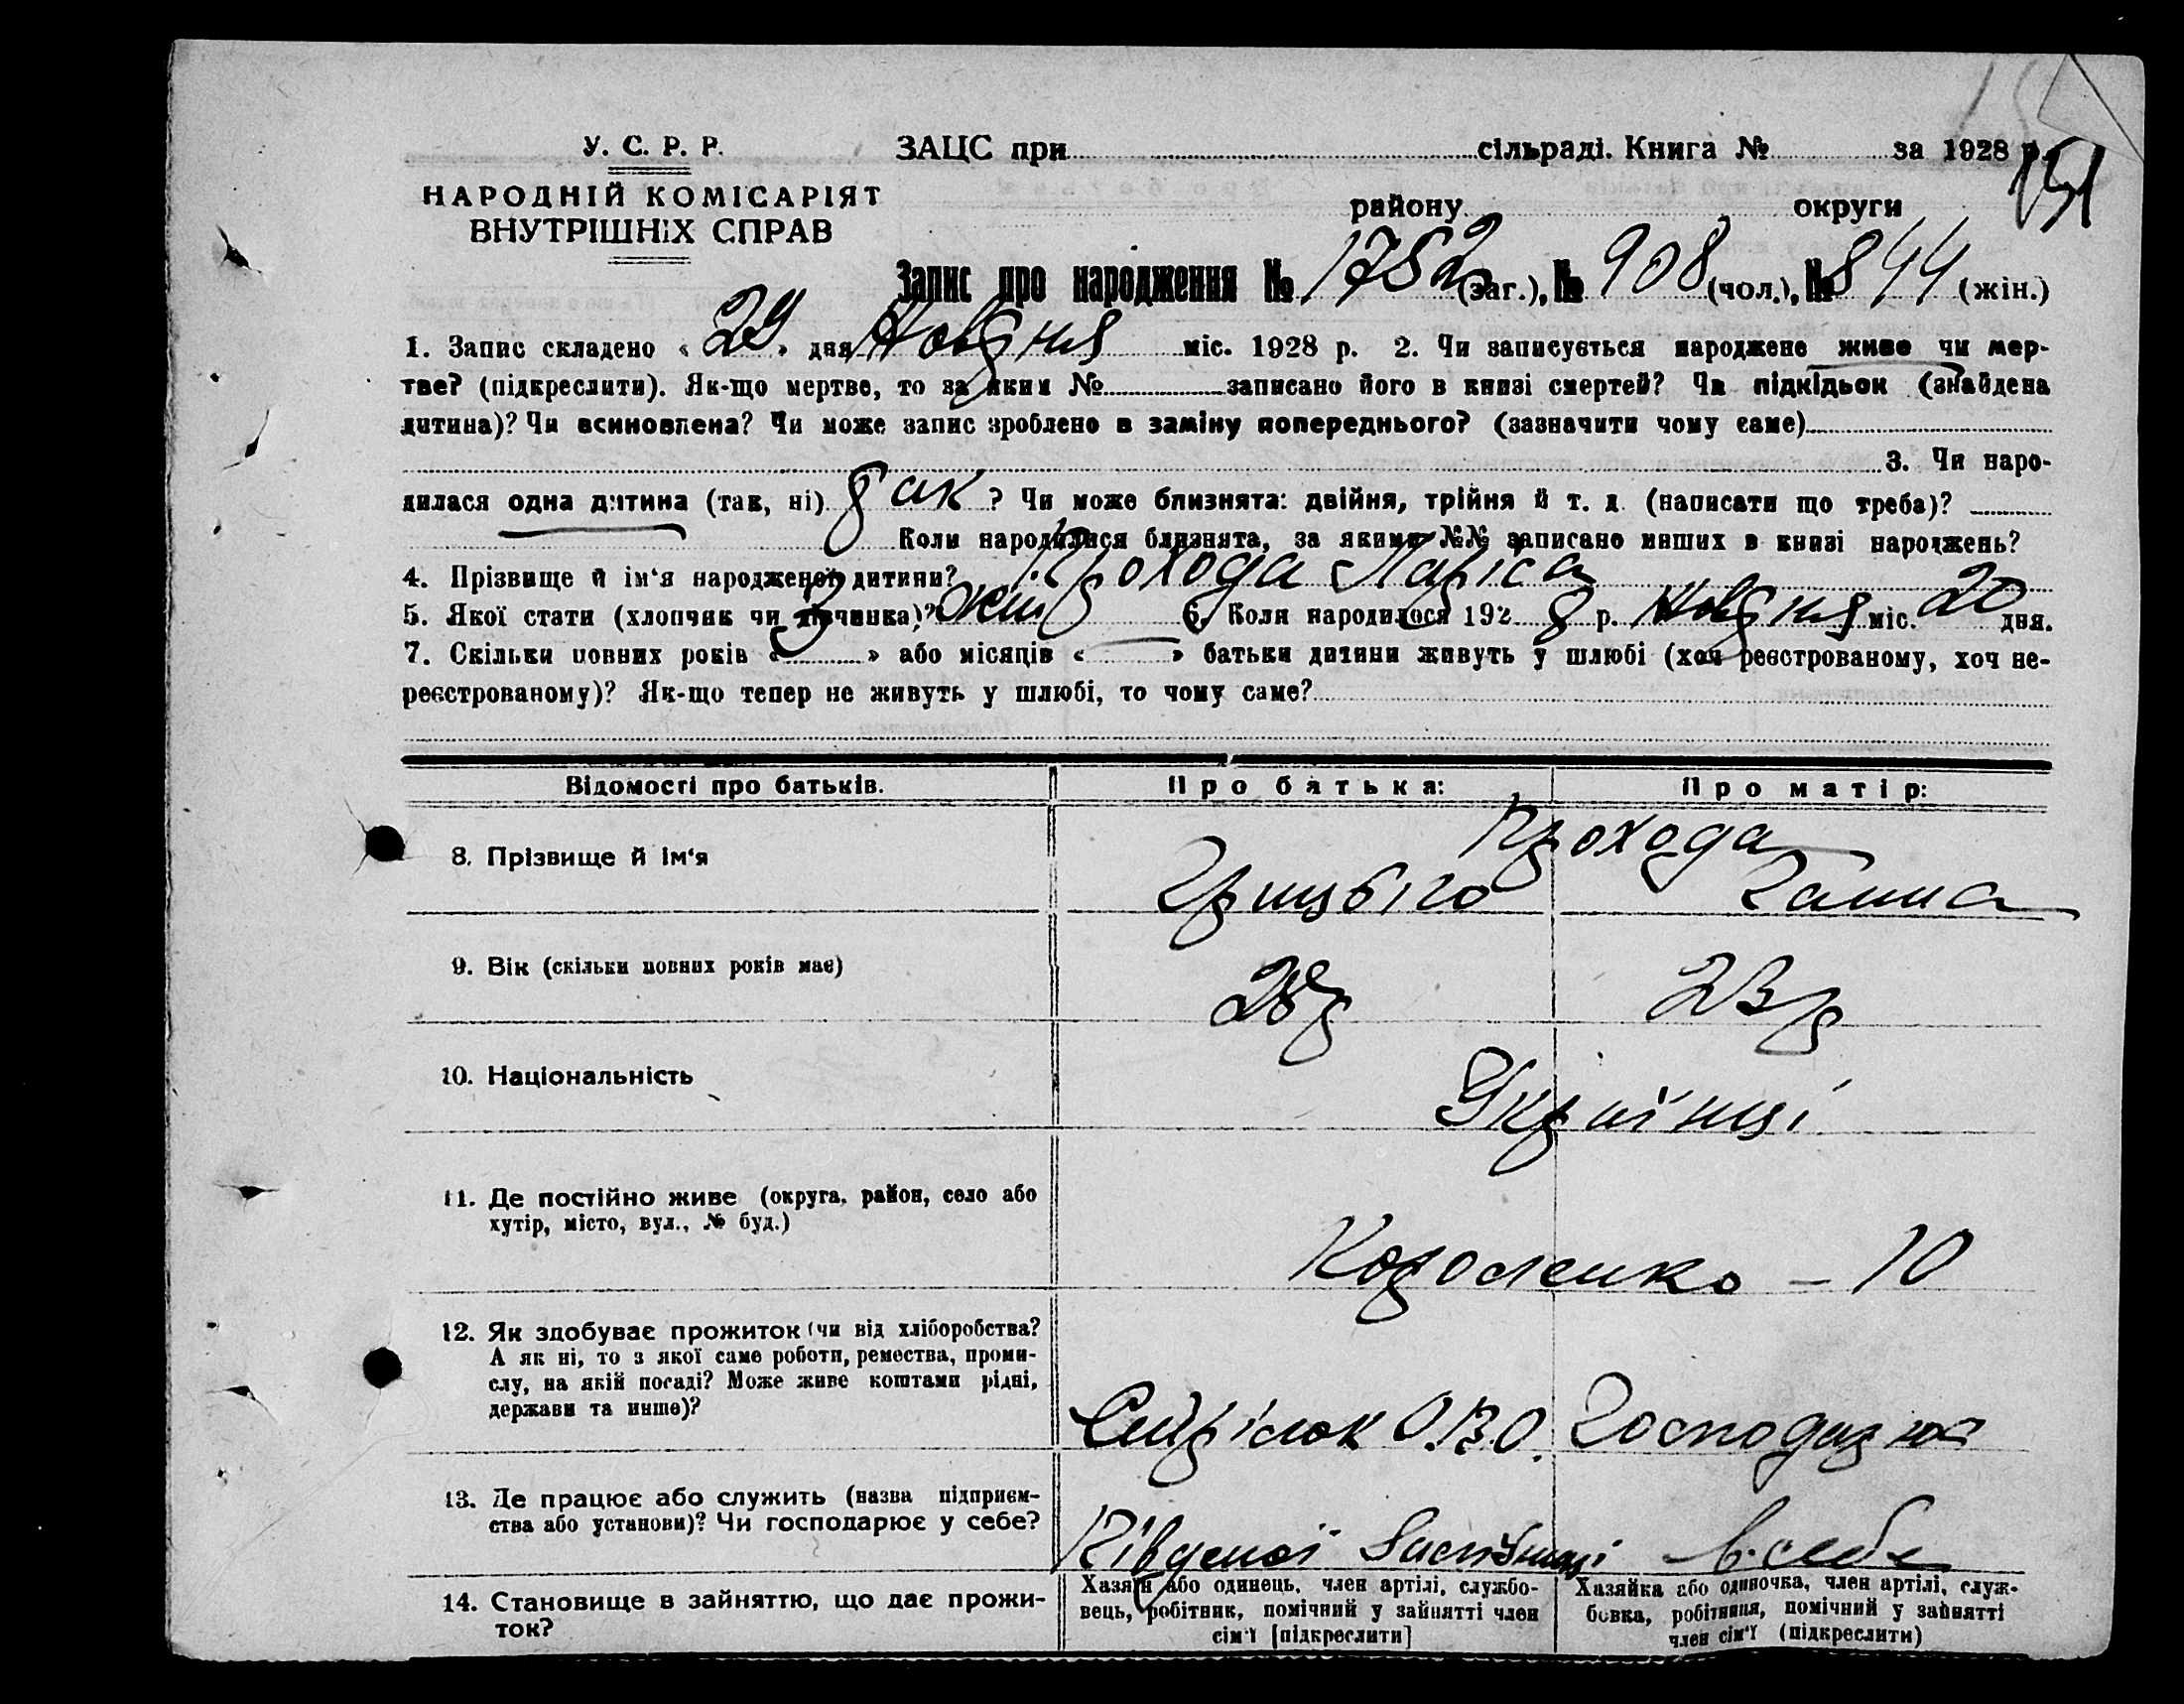 У. С. Р. Р. ЗАЦС при сільраді. Книга № за 1928 р.
151
НАРОДНІЙ КОМІСАРІЯТ
ВНУТРІШНІХ СПРАВ
району округи
Запис про народження № 1752 (заг.), № 908 (чол.), № 844 (жін.)
1. Запис складено « 29 » дня Новбрня міс. 1928 р. 2. Чи записується народжене живе чи мер-
тве? (підкреслити). Як-що мертве, то за яким № записано його в книзі смертей? Чи підкідьок (знайдена
дитина)? Чи всиновлена? Чи може запис зроблено в заміну попереднього? (зазначити чому саме)
3. Чи наро-
дилася одна дитина (так, ні) так ? Чи може близнята: двійня, трійня й т. д. (написати що треба)?
Коли народилися близнята, за якими №№ записано инших в книзі народжень?
4. Прізвище й ім‘я народженої дитини? Прохода Ларіса
5. Якої стати (хлопчик чи дівчинка)? жін 6. Коли народилося 192 8 р. міс. 20 дня.
7. Скільки повних років « 3 » або місяців « — » батьки дитини живуть у шлюбі (хоч реєстрованому, хоч не-
реєстрованому)? Як-що тепер не живуть у шлюбі, то чому саме?
Відомості про батьків. Про батька: Про матір:
Прохода
8. Прізвище й ім‘я Галина
9. Вік (скільки повних років має) 28р 23р
10. Національність Українці
11. Де постійно живе (округа, район, село або
хутір, місто, вул., № буд.)
Короленко – 10
12. Як здобуває прожиток (чи від хліборобства?
А як ні, то з якої саме роботи, ремества, проми-
слу, на якій посаді? Може живе коштами рідні,
держави та инше)?
Господарює
13. Де працює або служить (назва підприєм-
ства або установи)? Чи господарює у себе?
Південої в себе
14. Становище в зайняттю, що дає прожи-
ток?
Хазяїн або одинець, член артілі, службо-
вець, робітник, помічний у зайнятті член
сім‘ї [підкреслити]
Хазяйка або одиночка, член артілі, служ-
бовка, робітниця, помічний у зайнятті
член сім‘ї (підкреслити)